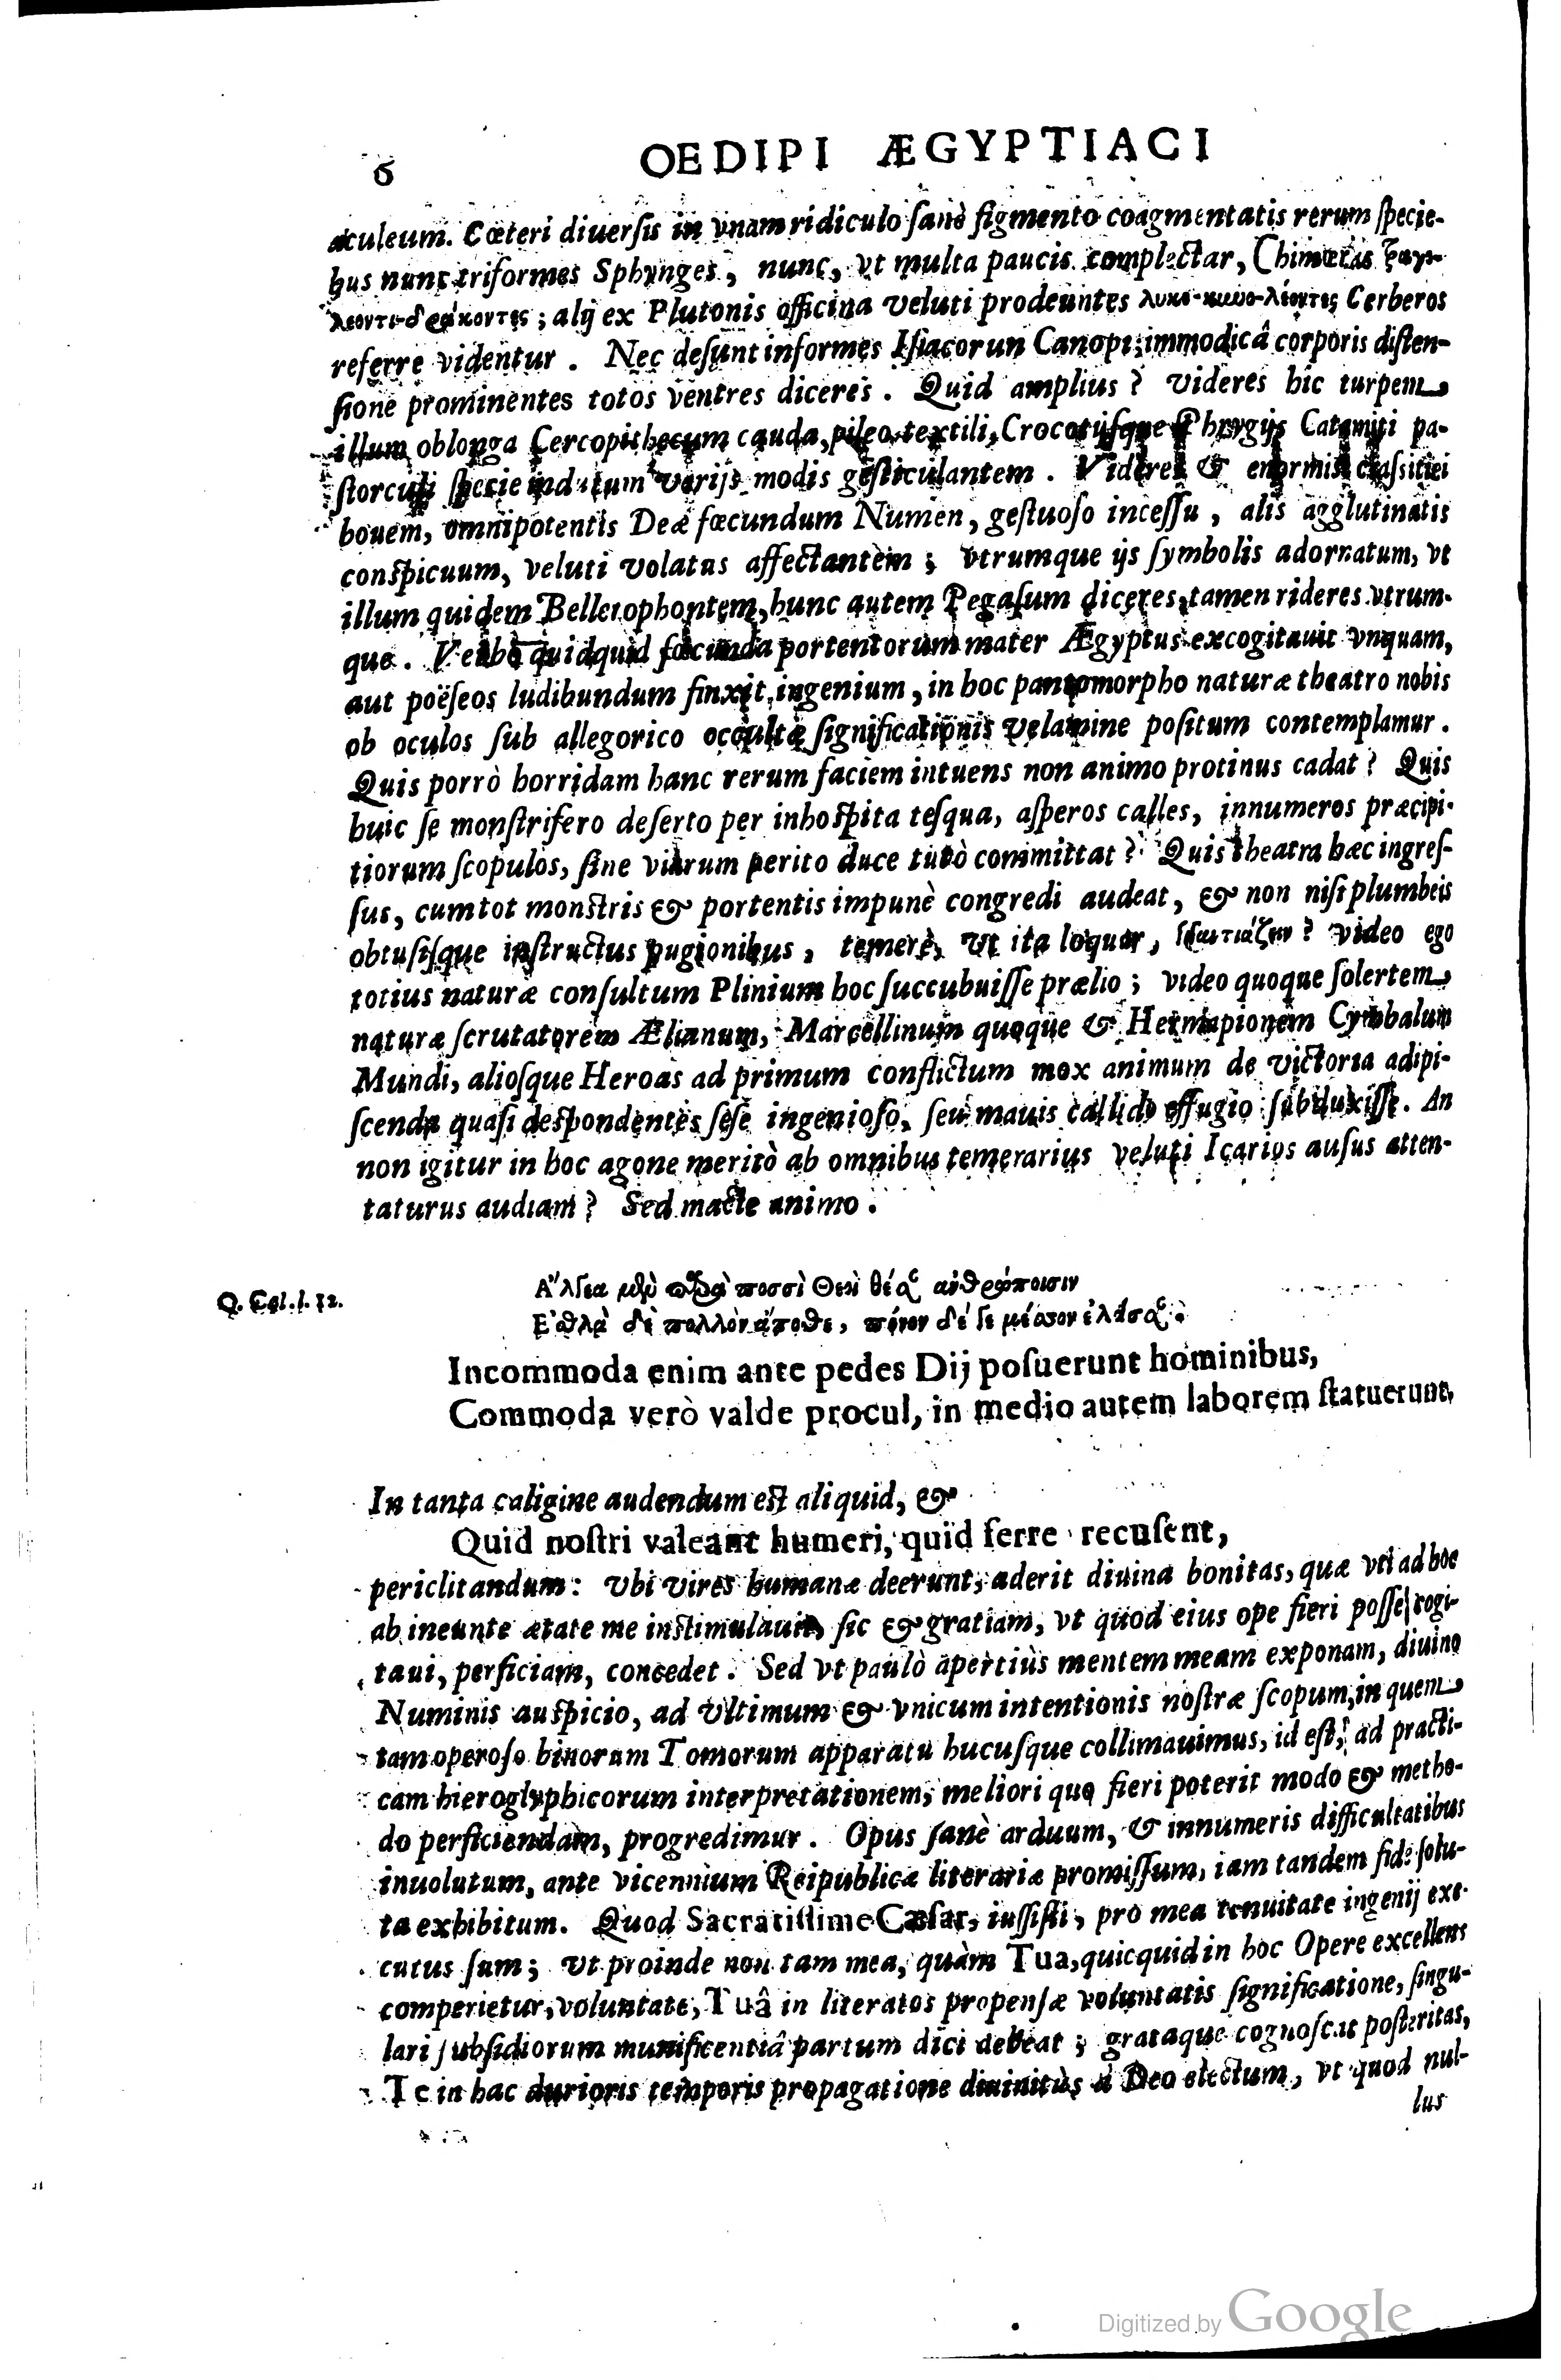 6
OEDIPI ÆGYPTIACI
aculeum. Cœteri diuersis in vnam ridiculo sanè figmento coagmentatis rerum specie-
bus nunc triformes Sphynges, nunc, vt multa paucis complectar, Chimæras τραγι-
λεοντι-δράκοντες; alij ex Plutonis officina veluti prodeuntes λυκο-κυνο-λέοντες Cerberos
referre videntur. Nec desunt informes Isiacorun Canopi; immodicâ corporis disten-
sione prominentes totos ventres diceres. Quid amplius? videres hic turpem
illum oblonga Cercopithecum cauda, pileo textili, Crocotijsque Phrygijs Catamiti pa-
storculi specie indutum varijs modis gesticulantem. Videres & enormis crassitiei
bouem, omnipotentis Deæ fœcundum Numen, gestuoso incessu, alis agglutinatis
conspicuum, veluti volatus affectantem; vtrumque ijs symbolis adornatum, vt
illum quidem Bellerophontem, hunc autem Pegasum diceres, tamen rideres vtrum-
que. Verbo quidquid fœcunda portentorum mater Ægyptus excogitauit vnquam,
aut poëseos ludibundum finxit ingenium, in hoc pantomorpho naturæ theatro nobis
ob oculos sub allegorico occultæ significationis velamine positum contemplamur.
Quis porrò horridam hanc rerum faciem intuens non animo protinus cadat? Quis
huic se monstrifero deserto per inhospita tesqua, asperos calles, innumeros præcipi-
tiorum scopulos, sine viarum perito duce tutò committat? Quis theatra hæc ingres-
sus, cum tot monstris & portentis impunè congredi audeat, & non nisi plumbeis
obtusisque instructus pugionibus, temerè, vt ita loquar, video ego
totius naturæ consultum Plinium hoc succubuisse prælio; video quoque solertem
naturæ scrutatorem Ælianum, Marcellinum quoque & Hermapionem Cymbalum
Mundi, aliosque Heroas ad primum conflictum mox animum de victoria adipi-
scenda quasi despondentes sese ingenioso, seu mauis callido effugio subduxisse. An
non igitur in hoc agone meritò ab omnibus temerarius veluti Icarios ausus atten-
taturus audiam? Sed macte animo.
Q. Cal. l. 12.
Ἄλγεα μὲν παρὰ ποσσὶ Θεοὶ θέσαν ἀνθρώποισιν
Ἐσθλὰ δὲ πολλὸν ἄποθε, πόνον δέ γε μέσσον ἐλάσαν.
Incommoda enim ante pedes Dij posuerunt hominibus,
Commoda verò valde procul, in medio autem laborem statuerunt,
In tanta caligine audendum est aliquid, &
Quid nostri valeant humeri, quid ferre recusent,
periclitandum: vbi vires humanæ deerunt, aderit diuina bonitas, quæ vti ad hoc
ab ineunte ætate me instimulauit, sic & gratiam, vt quod eius ope fieri posse cogi-
taui, perficiam, concedet. Sed vt paulò apertiùs mentem meam exponam, diuino
Numinis auspicio, ad vltimum & vnicum intentionis nostræ scopum, in quem
tam operoso binorum Tomorum apparatu hucusque collimauimus, id est, ad practi-
cam hieroglyphicorum interpretationem, meliori quo fieri poterit modo & metho-
do perficiendam, progredimur. Opus sanè arduum, & innumeris difficultatibus
inuolutum, ante vicennium Reipublicæ literariæ promissum, iam tandem fide solu-
ta exhibitum. Quod Sacratissime Cæsar, iussisti, pro mea tenuitate ingenij exe-
cutus sum; vt proinde non tam mea, quàm Tua, quicquid in hoc Opere excellens
comperietur, voluntate, Tuâ in literatos propensæ voluntatis significatione, singu-
lari subsidiorum munificentiâ partum dici debeat; grataque cognoscat posteritas,
Te in hac durioris temporis propagatione diuinitùs à Deo electum, vt quod nul-
lus
Digitized by Google